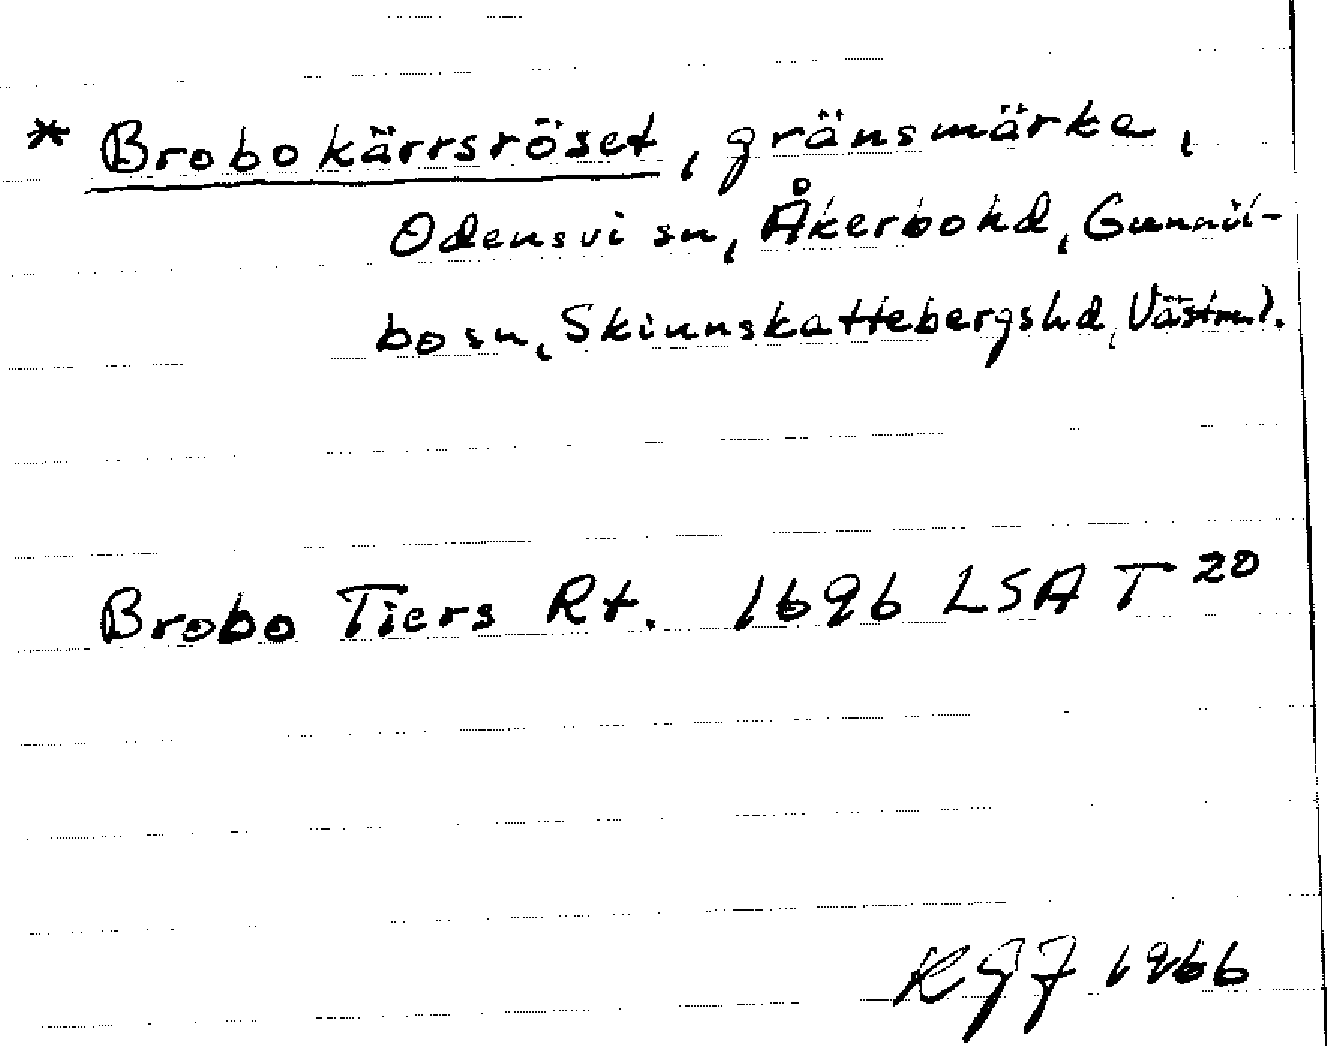 * Brobokärrsröset, gränsmärke,
Odensvi sn, Åkerbohd, Gunnil-
bo sn, Skinnskattebergshd, Västml.
Brobo Tiers Rt. 1696 LSA T 20
KGF 1966